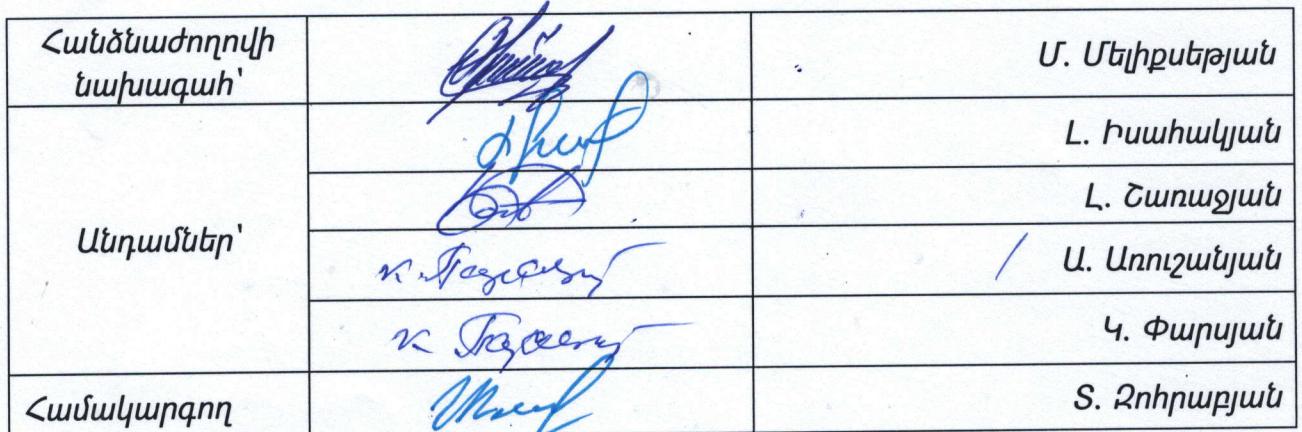 Հանձնաժողովի
նախագահ՝
Մ. Մելիքսեթյան
Լ. Իսահակյան
Լ. Շառաջյան
Անդամներ՝
Ա. Առուշանյան
Կ. Փարսյան
Համակարգող
Տ. Զոհրաբյան